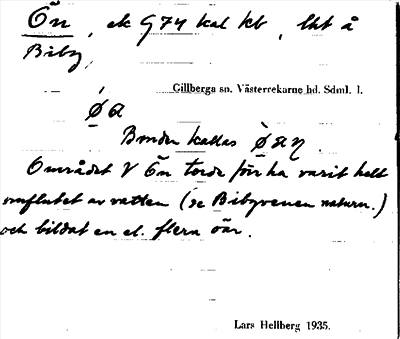 Ön, ek G74 kal kb, lkt å
Biby,
Gillberga sn. Västerrekarne hd. Sdml. l.
ǿa
Bonden kallas
Området V Ön torde för ha varit helt
omflutet av vatten (se Bibyvenen naturn.)
och bildat en el. flera öar.
Lars Hellberg 1935.